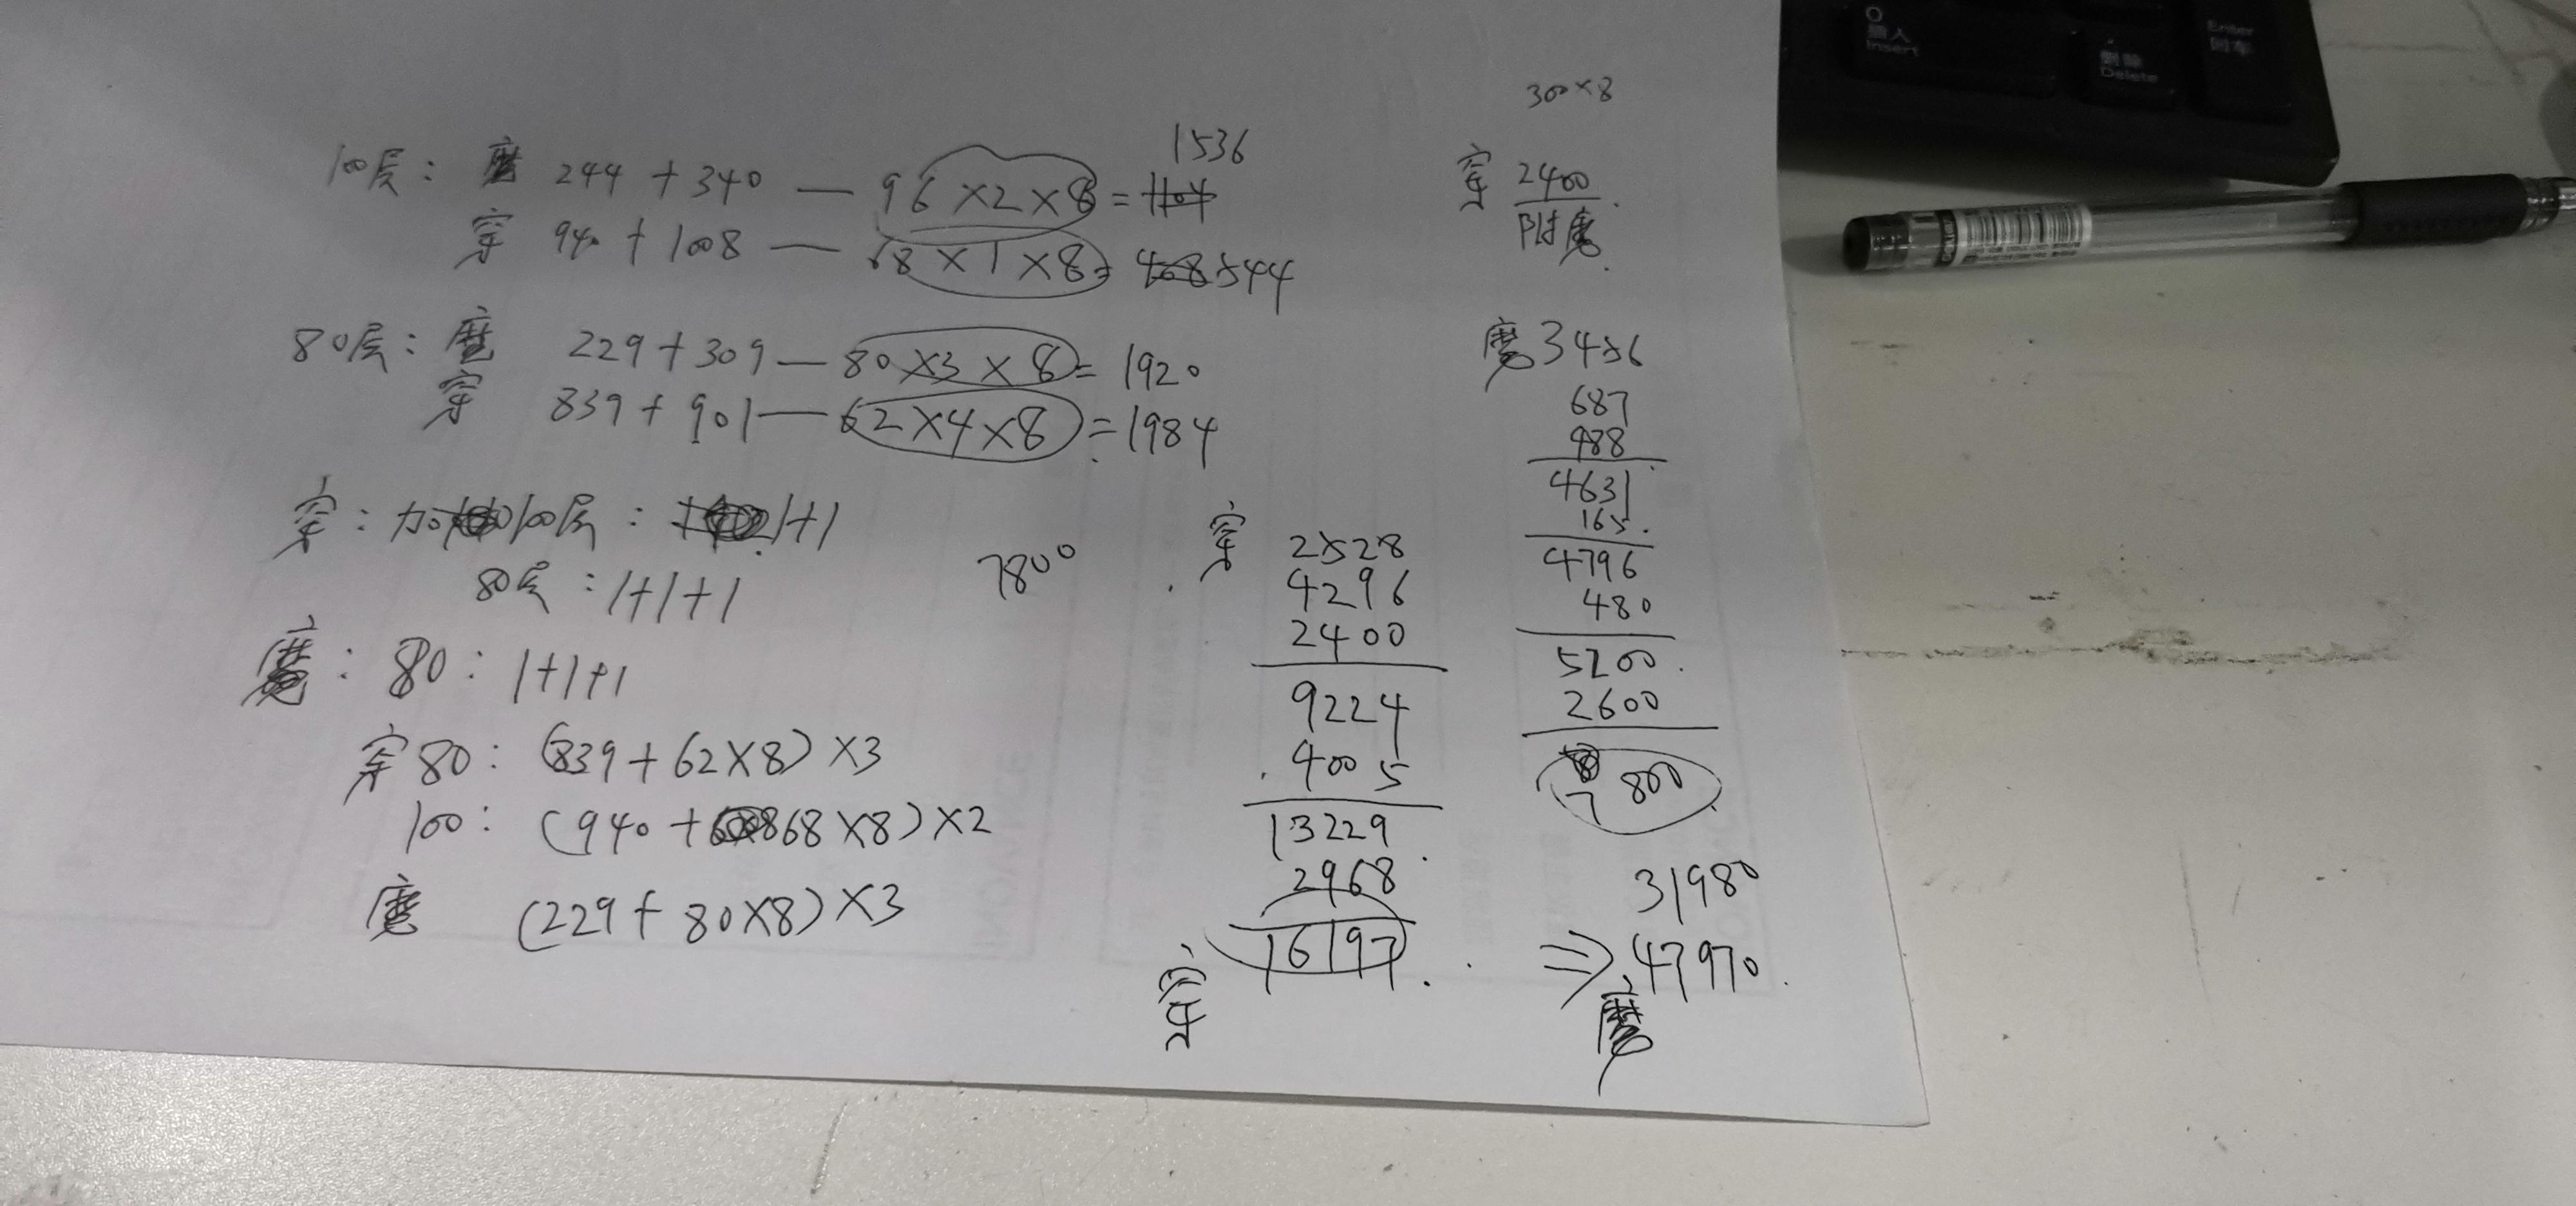 100层: 魔 244 + 340 — 96 ×2 ×8 = 1536
穿 940 + 1008 — 68 ×1 ×8= 544
80层: 魔 229 + 309 — 80 ×3 × 8 = 1920
穿 839 + 901 — 62 ×4 ×8 = 1984
穿: 加100层: 1+1
80层: 1+1+1
魔: 80: 1+1+1
穿80: (839 + 62×8) ×3
100: (940 + 68 ×8) ×2
魔 (229 + 80×8) ×3
7800
穿 2528
4296
2400
9224
4005
13229
2968
16197
穿
300×8
穿 2400
附魔
魔 3456
687
488
4631
165
4796
480
5200
2600
7800
31980
⇒ 47970
魔
O
插入
Insert
删除
Delete
Enter
回车